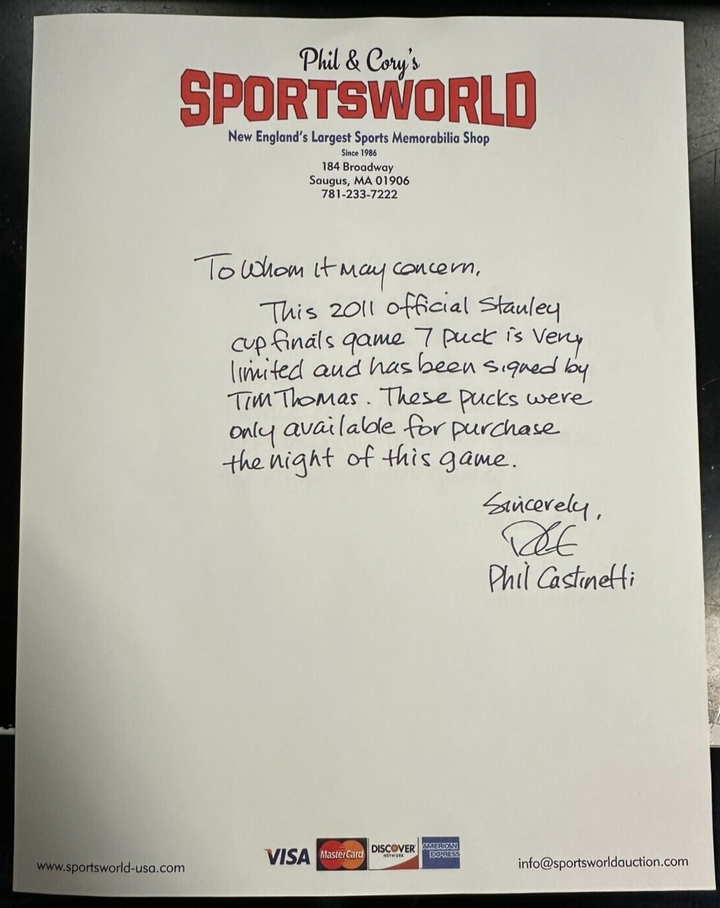 Phil & Cory's
SPORTSWORLD
New England's Largest Sports Memorabilia Shop
Since 1986
184 Broadway
Saugus, MA 01906
781-233-7222
To Whom it may concern,
This 2011 official Stanley
cup finals game 7 puck is very
limited and has been signed by
Tim Thomas. These pucks were
only available for purchase
the night of this game.
Sincerely,
Phil Castinetti
VISA MasterCard DISCOVER NETWORK AMERICAN EXPRESS
www.sportsworld-usa.com
info@sportsworldauction.com